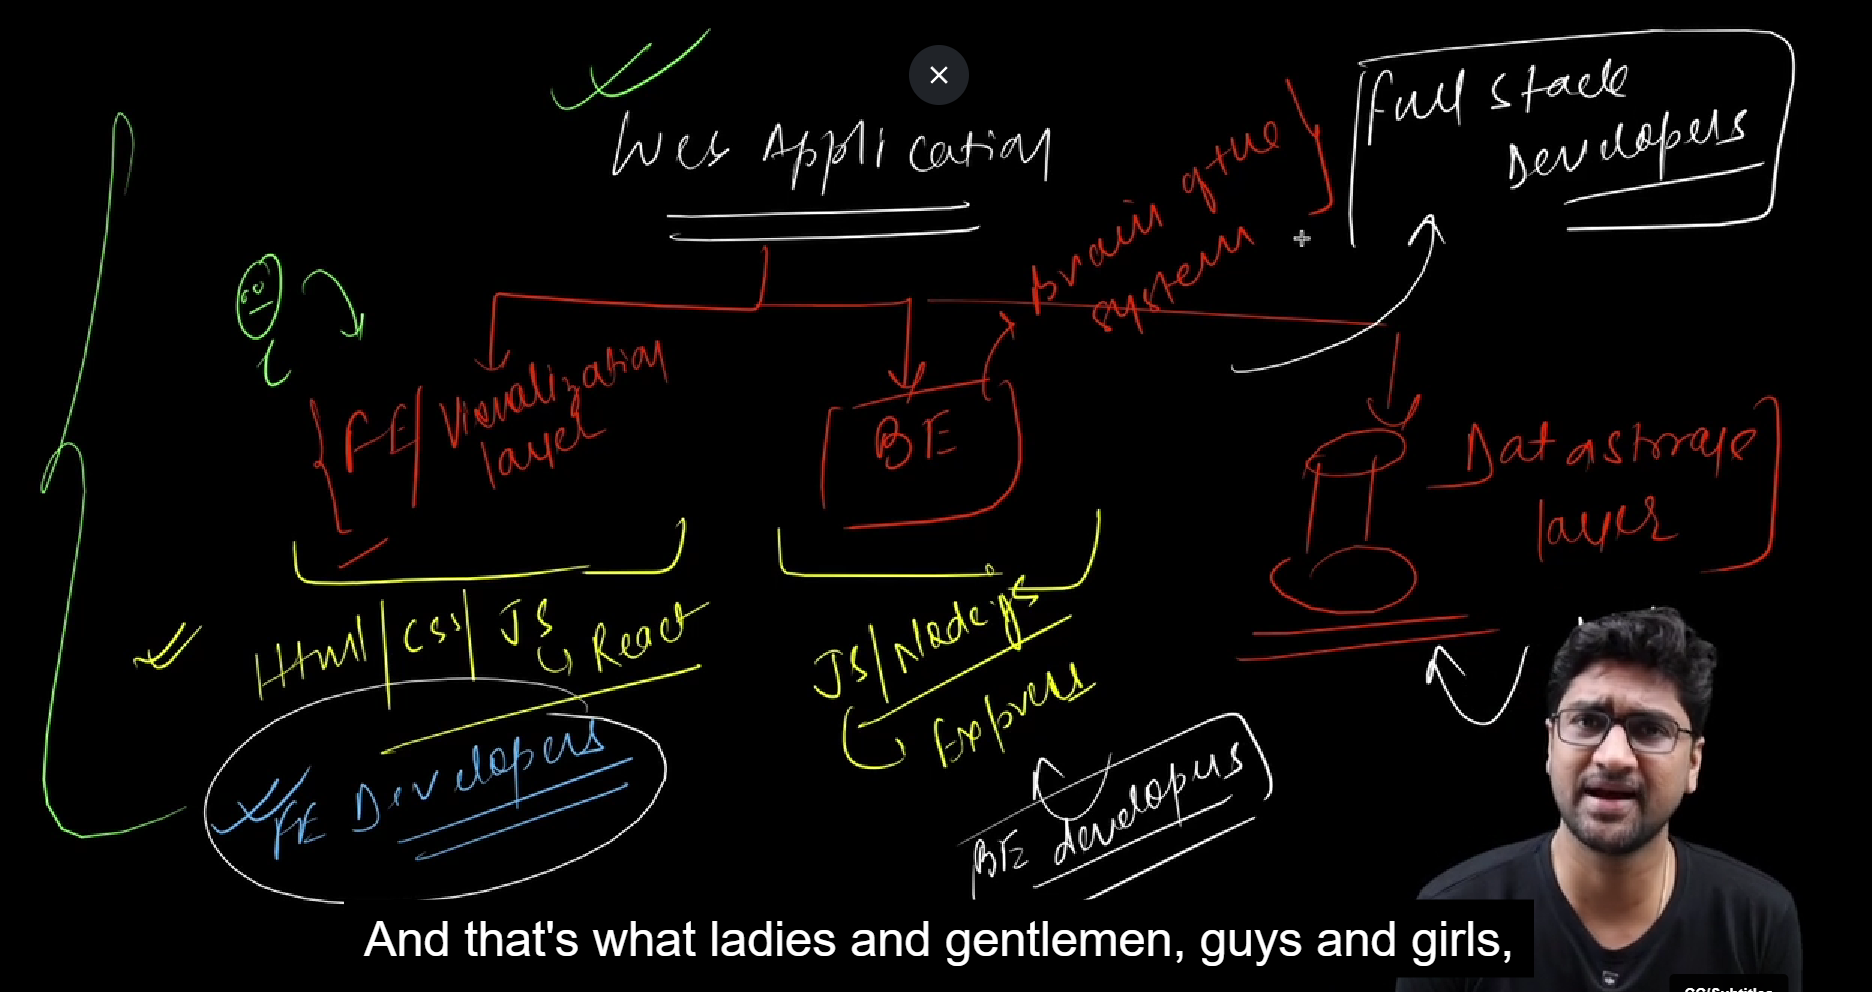 Web Application
Full stack
Developers
brain of the
system
FE/
Visualization
layer
BE
Data storage
layer
Html/CSS/JS
React
JS/Node.js
Express
FE Developers
BE developers
And that's what ladies and gentlemen, guys and girls,